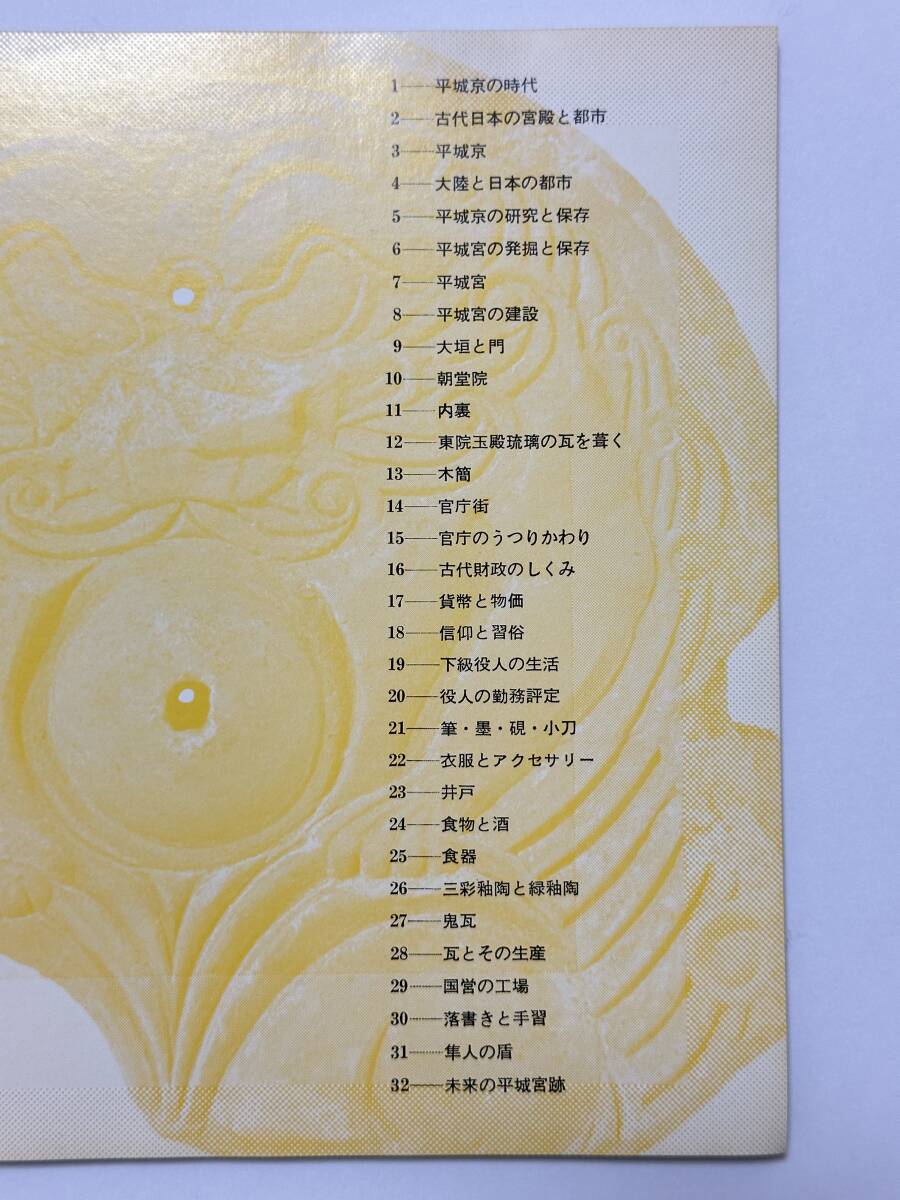 1——平城京の時代
2——古代日本の宮殿と都市
3——平城京
4——大陸と日本の都市
5——平城京の研究と保存
6——平城宮の発掘と保存
7——平城宮
8——平城宮の建設
9——大垣と門
10——朝堂院
11——内裏
12——東院玉殿琉璃の瓦を葺く
13——木簡
14——官庁街
15——官庁のうつりかわり
16——古代財政のしくみ
17——貨幣と物価
18——信仰と習俗
19——下級役人の生活
20——役人の勤務評定
21——筆・墨・硯・小刀
22——衣服とアクセサリー
23——井戸
24——食物と酒
25——食器
26——三彩釉陶と緑釉陶
27——鬼瓦
28——瓦とその生産
29——国営の工場
30——落書きと手習
31——隼人の盾
32——未来の平城宮跡